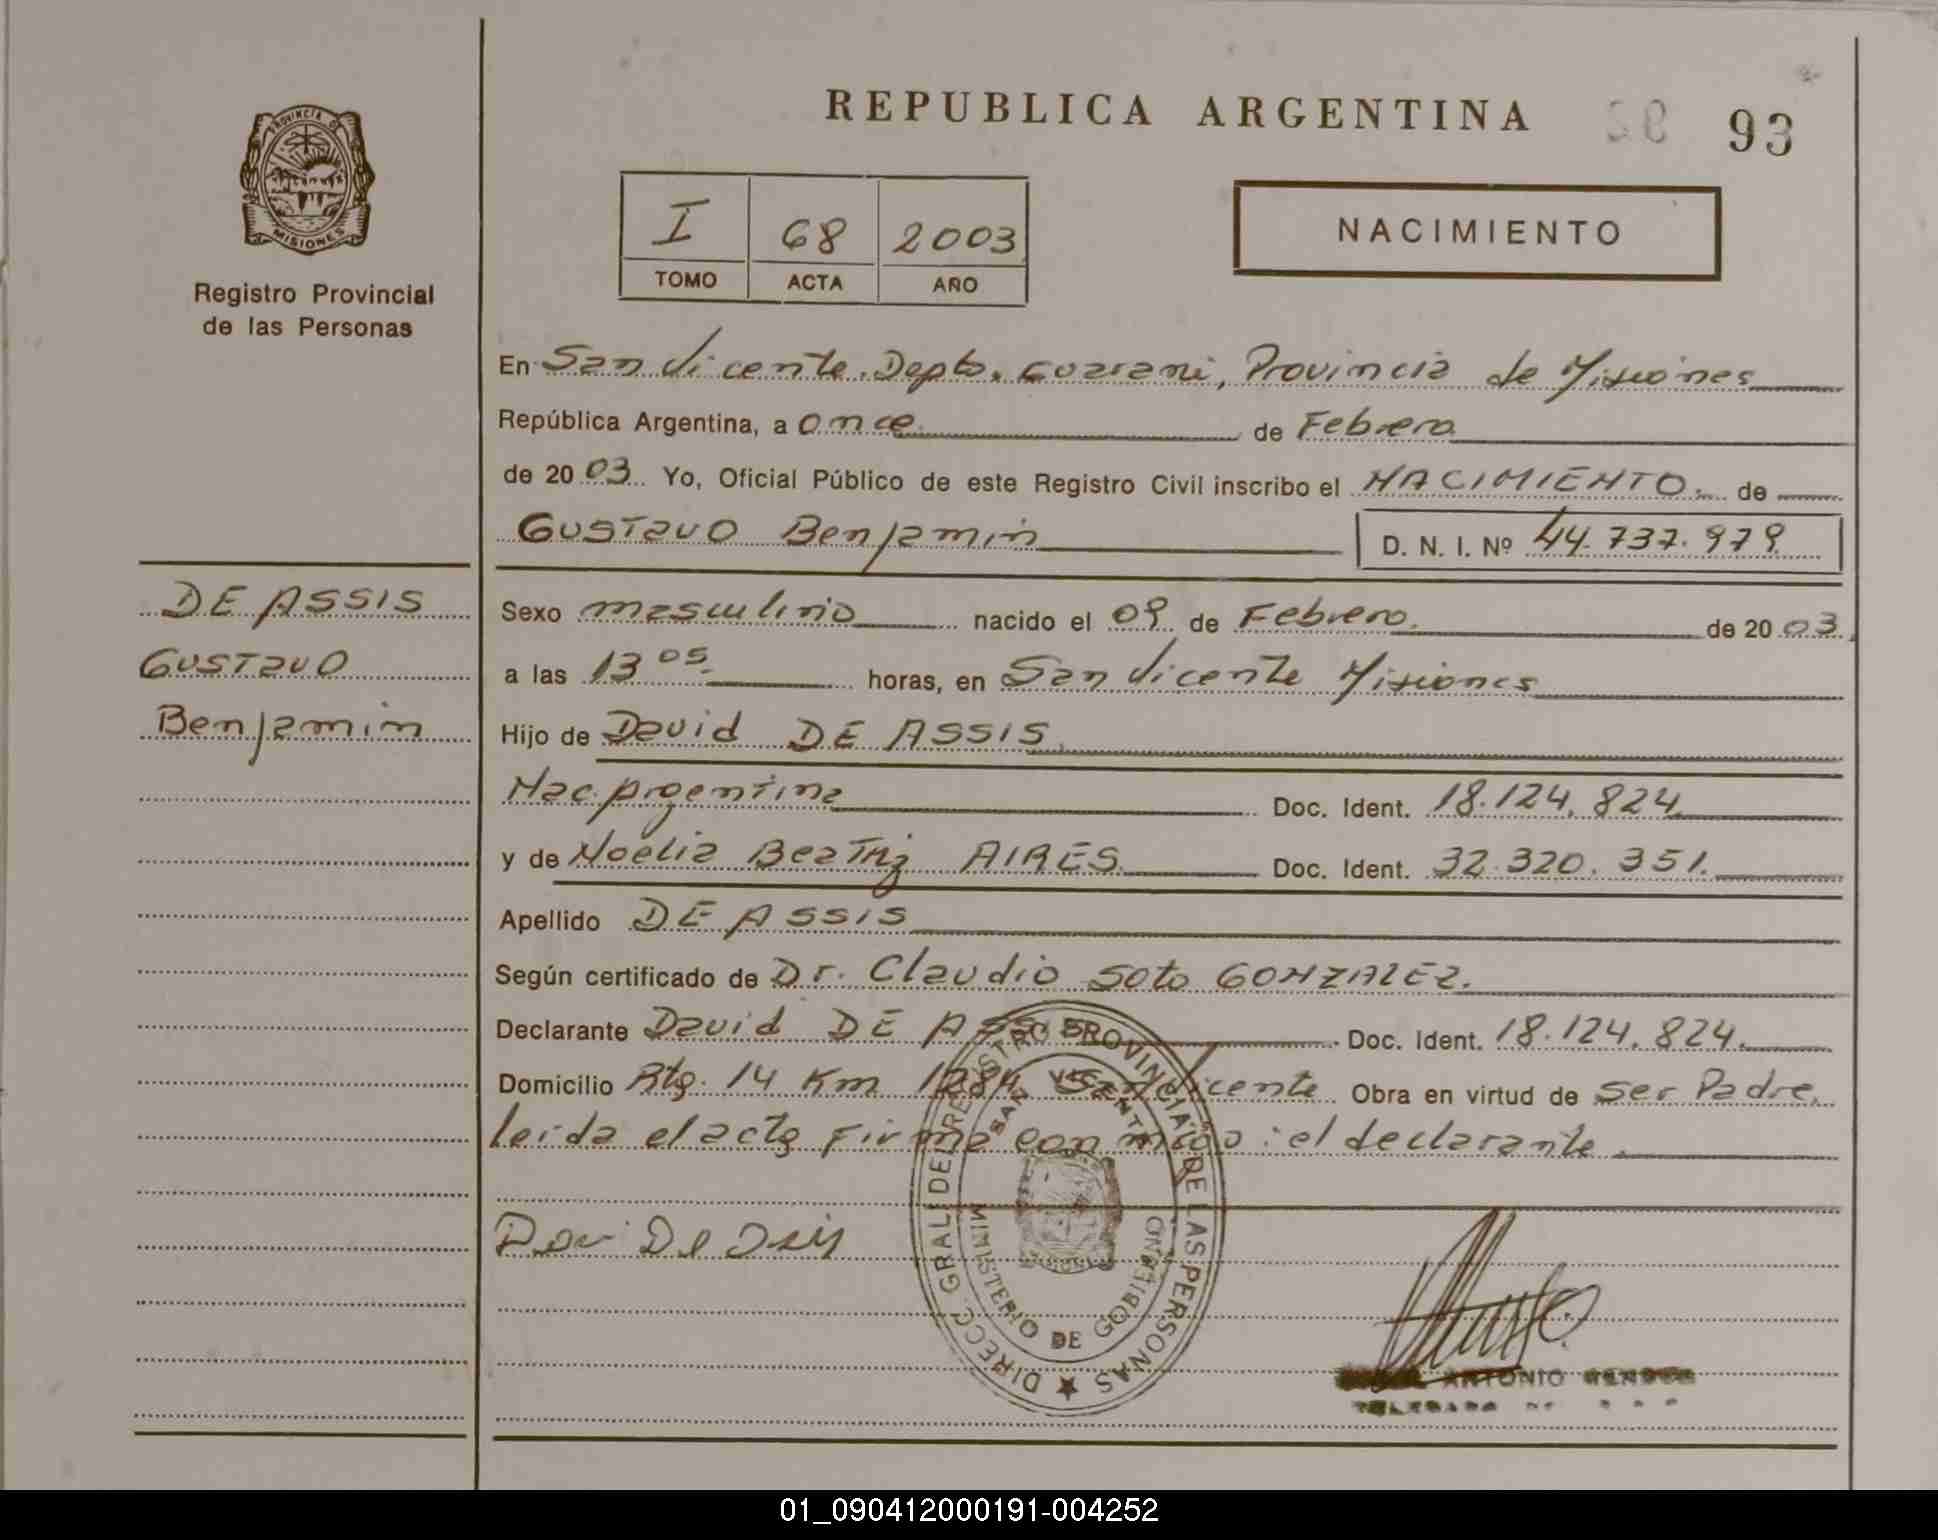 REPUBLICA ARGENTINA 93
PROVINCIA DE
MISIONES
Registro Provincial
de las Personas
I 68 2003
TOMO ACTA AÑO
NACIMIENTO
En San Vicente. Depto. Guarani, Provincia de Misiones
República Argentina, a once de Febrero
de 2003 Yo, Oficial Público de este Registro Civil inscribo el NACIMIENTO. de
GUSTavo Benjamin D. N. I. Nº 44.737.979
DE ASSIS
GUSTavo
Benjamin
Sexo masculino nacido el 09 de Febrero. de 2003.
a las 13 05 horas, en San Vicente Misiones
Hijo de David DE ASSIS
Nac. Argentina Doc. Ident. 18.124.824
y de Noelia Beatriz AIRES. Doc. Ident. 32.320.351.
Apellido DE ASSIS
Según certificado de Dr. Claudio Soto GONZALEZ.
Declarante David DE ASSIS Doc. Ident. 18.124.824.
Domicilio Rta. 14 Km 1284 San Vicente Obra en virtud de ser Padre.
leida el acta Firma con migo: el declarante.
DIRECC. GRAL. DEL REGISTRO PROVINCIAL DE LAS PERSONAS
SAN VICENTE
MINISTERIO DE GOBIERNO
ANTONIO
01_090412000191-004252